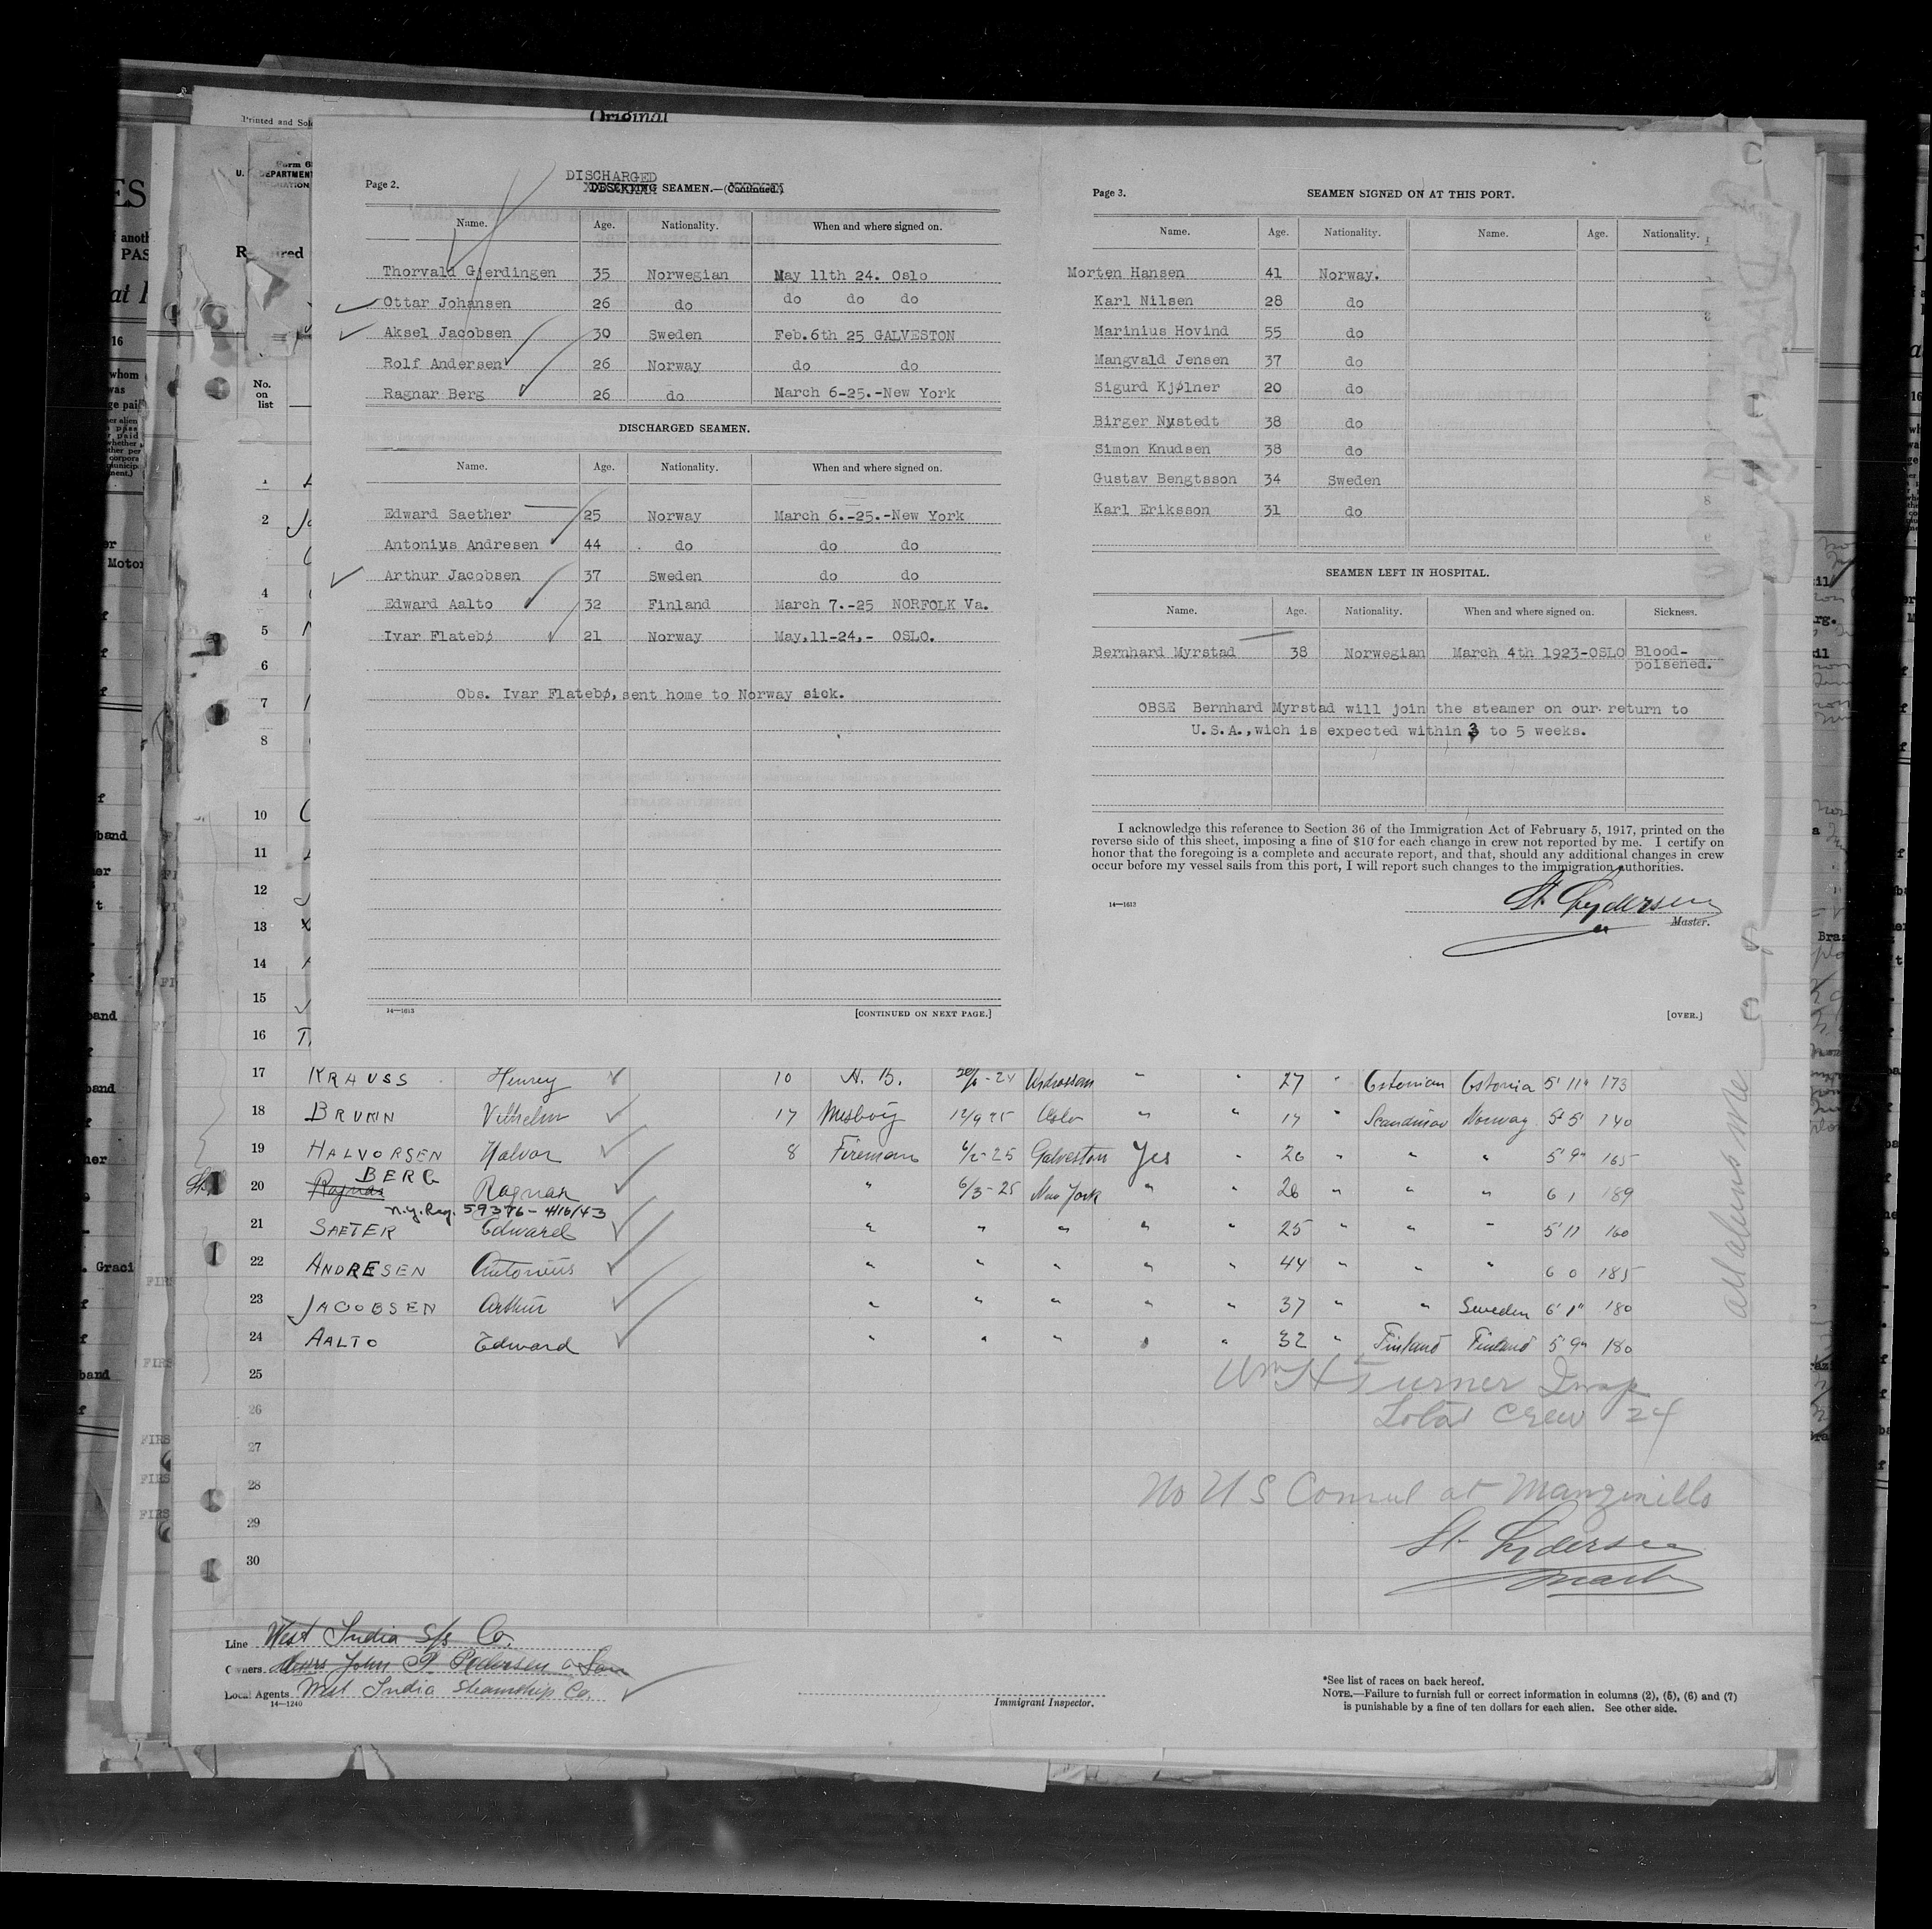 Original
Printed and Sol
Page 2.
DISCHARGED
SEAMEN.—(Continued.)
Name. Age. Nationality. When and where signed on.
Thorvald Gjerdingen 35 Norwegian May 11th 24. Oslo
Ottar Johansen 26 do do do do
Aksel Jacobsen 30 Sweden Feb.6th 25 GALVESTON
Rolf Andersen 26 Norway do do
Ragnar Berg 26 do March 6-25.-New York
DISCHARGED SEAMEN.
Name. Age. Nationality. When and where signed on.
Edward Saether 25 Norway March 6.-25.-New York
Antonius Andresen 44 do do do
Arthur Jacobsen 37 Sweden do do
Edward Aalto 32 Finland March 7.-25 NORFOLK Va.
Ivar Flatebø 21 Norway May,11-24,- OSLO.
Obs. Ivar Flatebø, sent home to Norway sick.
14—1613 [CONTINUED ON NEXT PAGE.]
Page 3. SEAMEN SIGNED ON AT THIS PORT.
Name. Age. Nationality. Name. Age. Nationality.
Morten Hansen 41 Norway.
Karl Nilsen 28 do
Marinius Hovind 55 do
Mangvald Jensen 37 do
Sigurd Kjølner 20 do
Birger Nystedt 38 do
Simon Knudsen 38 do
Gustav Bengtsson 34 Sweden
Karl Eriksson 31 do
SEAMEN LEFT IN HOSPITAL.
Name. Age. Nationality. When and where signed on. Sickness.
Bernhard Myrstad 38 Norwegian March 4th 1923-OSLO Blood-
poisened.
OBSE Bernhard Myrstad will join the steamer on our return to
U.S.A.,wich is expected within 3 to 5 weeks.
I acknowledge this reference to Section 36 of the Immigration Act of February 5, 1917, printed on the
reverse side of this sheet, imposing a fine of $10 for each change in crew not reported by me. I certify on
honor that the foregoing is a complete and accurate report, and that, should any additional changes in crew
occur before my vessel sails from this port, I will report such changes to the immigration authorities.
14—1613
Master.
[OVER.]
No.
on
list
2
4
5
6
7
8
10
11
12
13
14
15
16
17 KRAUSS Henrey 10 A. B. " " 27 " Estonian Estonia 5' 11" 173
18 BRUNN Vilhelm 17 Messboy Oslo " " 17 " Scandinav Norway 5' 5' 140
19 HALVORSEN Halvor 8 Fireman 6/2-25 Galveston Yes " 26 " " " 5' 9" 165
BERG
20 Ragnar Ragnar " 6/3-25 New York " " 26 " " " 6 1 189
N.Y. Reg. 59376 - 4/16/43
21 SAETER Edward " " " " " 25 " " " 5' 11 160
22 ANDRESEN Antonius " " " " " 44 " " " 6 0 185
23 JACOBSEN Arthur " " " " " 37 " " Sweden 6' 1" 180
24 AALTO Edward " " " " " 32 " Finland Finland 5' 9" 180
25
Wm H Turner Insp
26
Total Crew 24
27
28
No U S Consul at Manzinillo
29
30
Line West India S/S Co.
Owners John P. Pedersen & Son
Local Agents West India Steamship Co.
14—1240
Immigrant Inspector.
*See list of races on back hereof.
NOTE.—Failure to furnish full or correct information in columns (2), (5), (6) and (7)
is punishable by a fine of ten dollars for each alien. See other side.